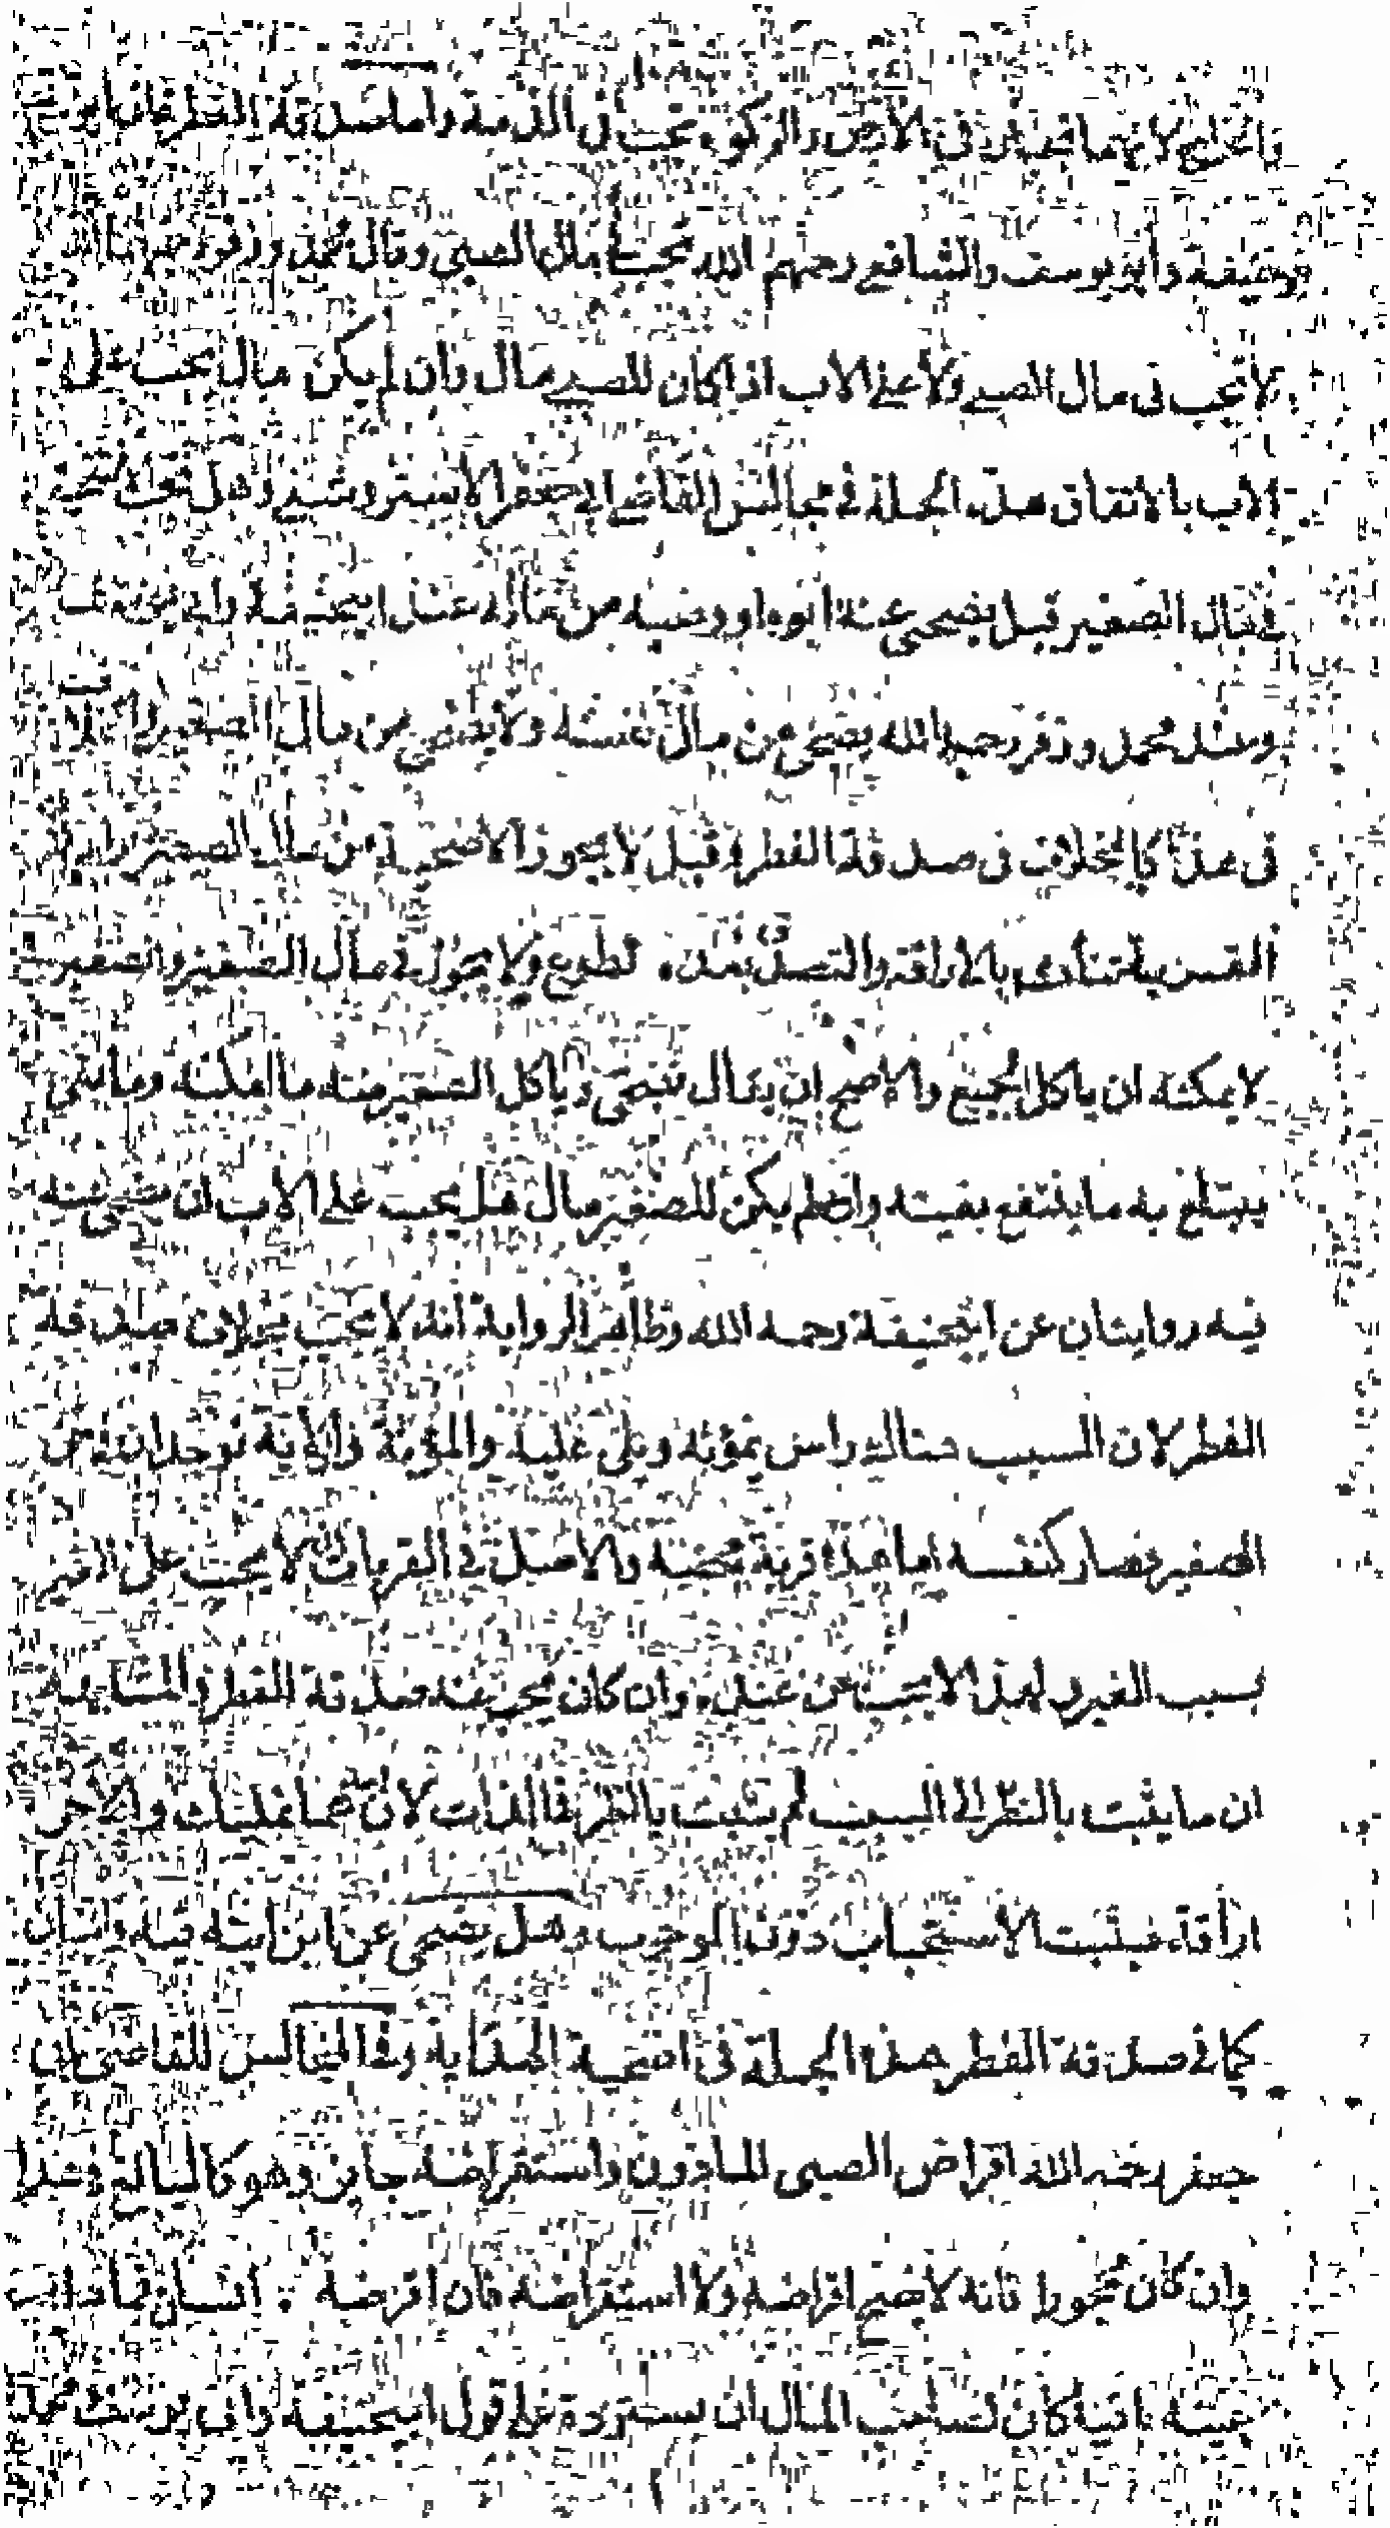 والخراج لانهما يجبان في الارض والزكوة يجب في الذمة واما صدقة الفطر فان
ابو حنيفة وابو يوسف والشافعي رحمهم الله يجب في مال الصبي وقال محمد وزفر رحمهما الله
لا يجب في مال الصبي ولا على الاب اذا كان للصبي مال وان لم يكن مال يجب على
الاب بالاتفاق هذه الجملة في مجالس القاضي ابي جعفر الاستروشني وهل يجب
في مال الصغير قيل يضحي عنه ابوه او وصيه من ماله عند ابيحنيفة وابي يوسف
وعند محمد وزفر رحمهما الله يضحي من مال نفسه ولا يضحي من مال الصغير والخلاف
في هذا كالخلاف في صدقة الفطر وقيل لا يجوز الاضحية من مال الصغير لان
القربة تتادى بالاراقة والتصدق بعده تطوع ولا يجوز في مال الصغير والصغير
لا يمكنه ان ياكل الجميع والاصح ان يقال يضحي وياكل الصغير منه ما امكنه وما بقي
يبتاع به ما ينتفع بعينه وان لم يكن للصغير مال هل يجب على الاب ان يضحي عنه
فيه روايتان عن ابيحنيفة رحمه الله وظاهر الرواية انه لا يجب بخلاف صدقة
الفطر لان السبب هناك راس يمونه ويلي عليه والمؤنة والولاية توجدان في
الصغير فصار كنفسه اما هذا قربة محضة والاصل في القربات ان لا يجب على الغير
بسبب الغير ولهذا لا يجب عن عبده وان كان يجب عنه صدقة الفطر
ان ما يثبت بالنظر الى السبب لم يثبت بالنظر الى الذات لان
اراقة فيثبت الاستحباب دون الوجوب وهل يضحي عن ابن ابنه
كما في صدقة الفطر هذه الجملة في اضحية الهداية وفي المجالس للقاضي ابي
جعفر رحمه الله اقراض الصبي الماذون واستقراضه جايز وهو كالبالغ في هذا
وان كان محجورا فانه لا يصح اقراضه ولا استقراضه فان اقرضه انسان فما دام
عينه باقيا كان لصاحب المال ان يسترده على قول ابيحنيفة وابي يوسف ومحمد